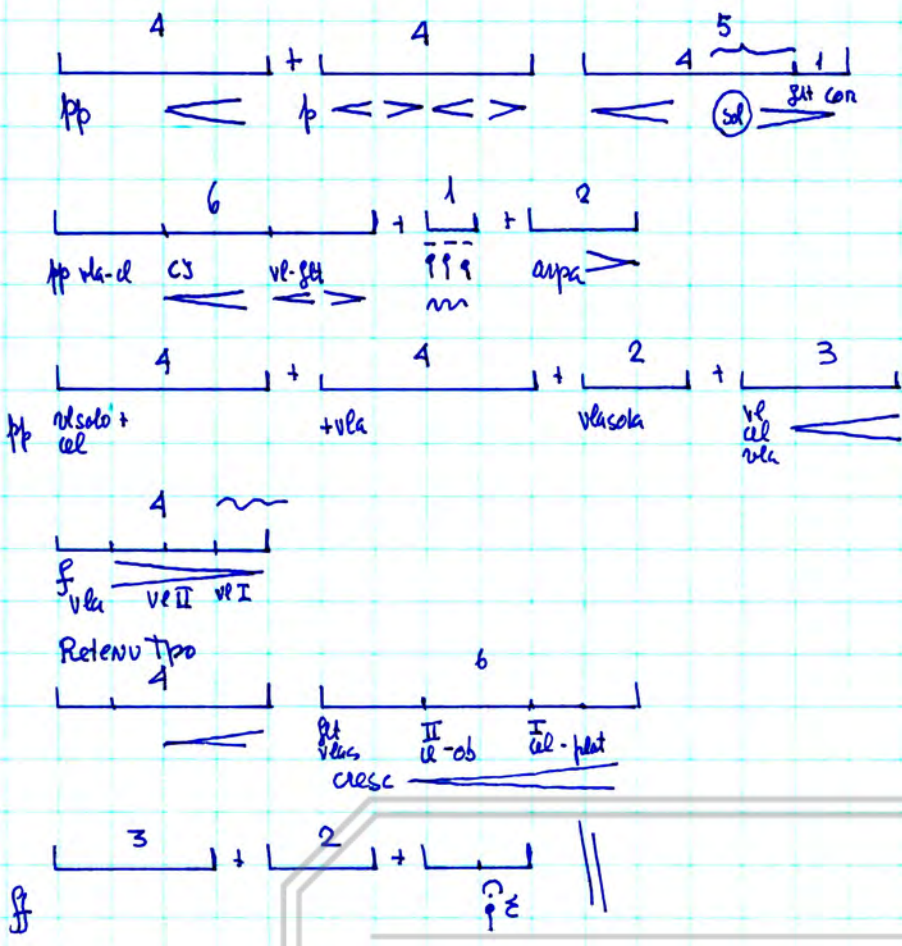 4 + 4 5
4 1
pp p sol flt cor
6 + 1 + 2
pp vla-cl CI vl-flt arpa
4 + 4 + 2 + 3
pp vl solo + +vla vla sola vl
cel cel
vla
4
f vla vl II vl I
Retenu Tpo
4 6
flt II I
vlas cl-ob cel-plat
cresc
3 + 2 +
ff